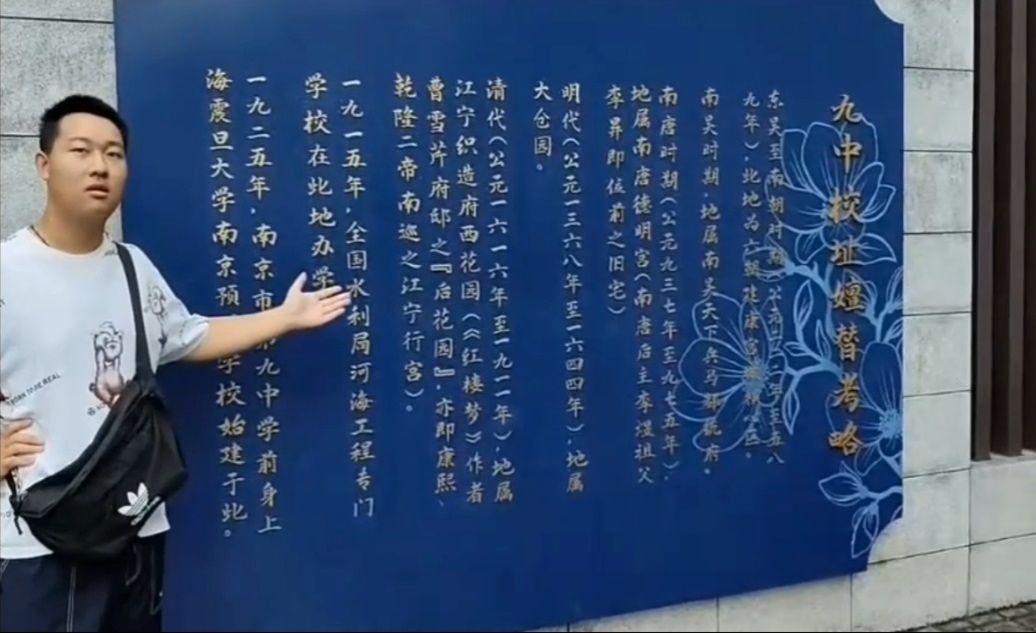 九中校址嬗替考略
东吴至南朝时期（公元二二年至五八
九年），此地为六朝建康宫城核心区。
南吴时期，地属南吴天下兵马都统府。
南唐时期（公元九三七年至九七五年），
地属南唐德明宫（南唐后主李煜祖父
李昪即位前之旧宅）
明代（公元一三六八年至一六四四年），地属
大仓园。
清代（公元一六一六年至一九一一年），地属
江宁织造府西花园（《红楼梦》作者
曹雪芹府邸之『后花园』，亦即康熙、
乾隆二帝南巡之江宁行宫）。
一九一五年，全国水利局河海工程专门
学校在此地办学
一九二五年，南京市第九中学前身上
海震旦大学南京预学校始建于此。
TO BE REAL
adidas